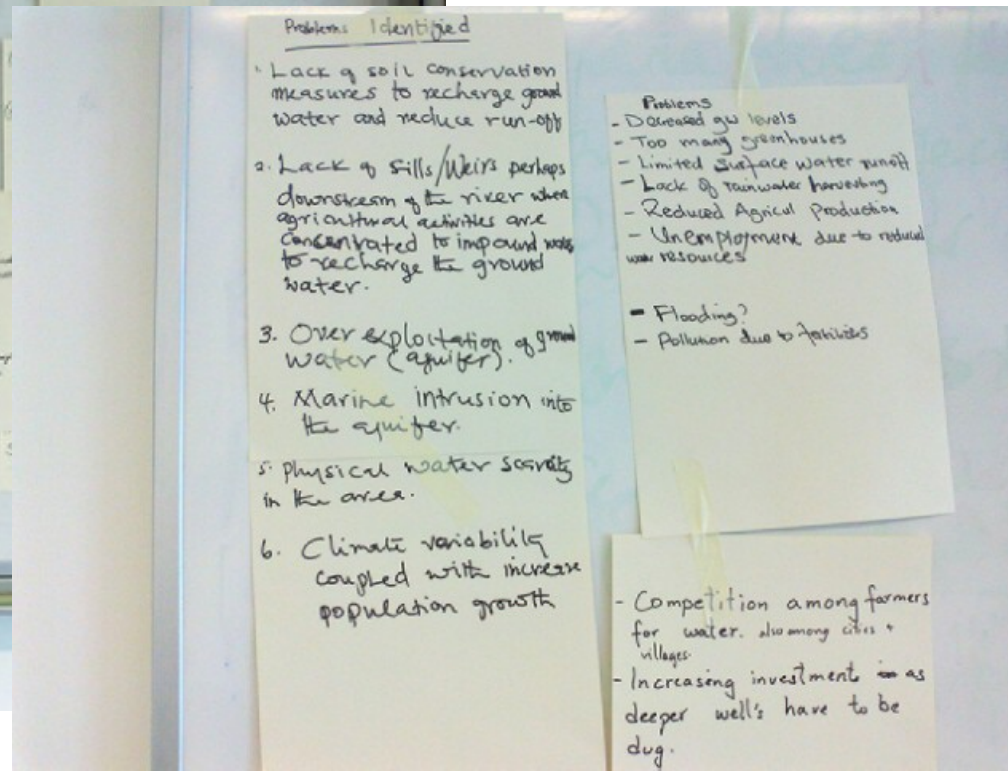 Problems Identified
1. Lack of soil conservation
measures to recharge ground
water and reduce run-off
2. Lack of Sills/Weirs perhaps
downstream of the river where
agricultural activities are
concentrated to impound water
to recharge the ground
water.
3. Over exploitation of ground
water (aquifer).
4. Marine intrusion into
the aquifer.
5. Physical water scarcity
in the area.
6. Climate variability
coupled with increase
population growth
Problems
- Decreased gw levels
- Too many greenhouses
- Limited Surface water runoff
- Lack of rainwater harvesting
- Reduced Agricul Production
- Unemployment due to reduced
water resources
- Flooding?
- Pollution due to
- Competition among farmers
for water. also among cities +
villages.
- Increasing investment as
deeper well's have to be
dug.